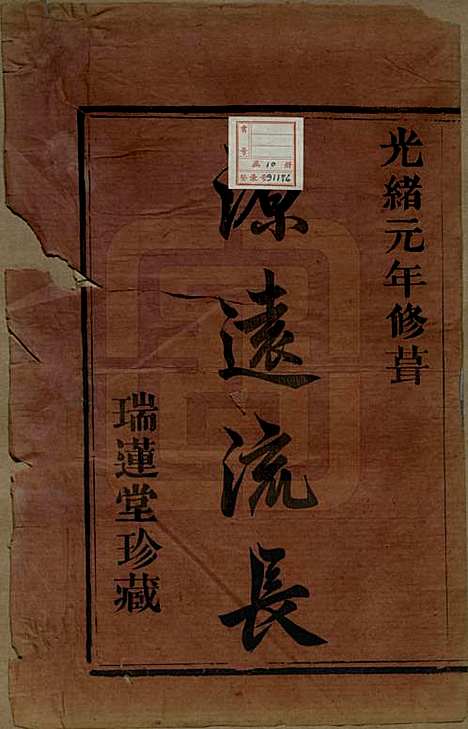 光緒元年修葺
源遠流長
瑞蓮堂珍藏
書號
函10册
登录号91176